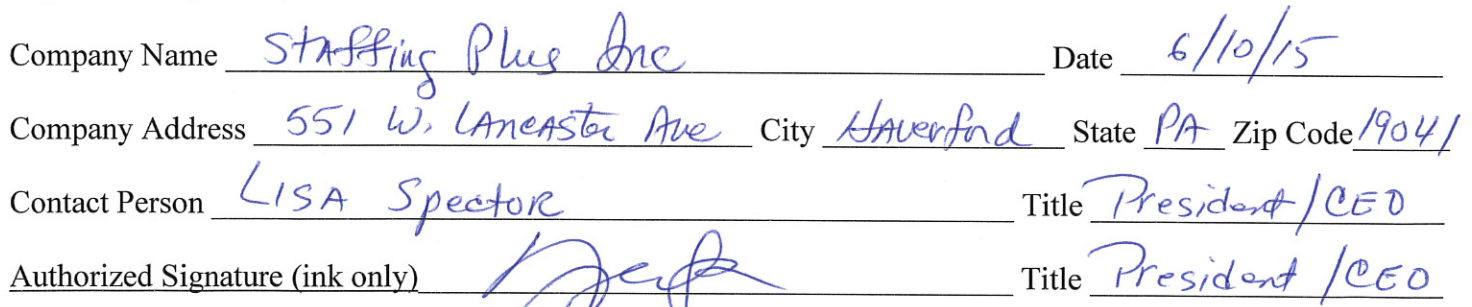 Company Name Staffing Plus Inc Date 6/10/15
Company Address 551 W. Lancaster Ave City Haverford State PA Zip Code 19041
Contact Person Lisa Spector Title President/CEO
Authorized Signature (ink only) Title President/CEO